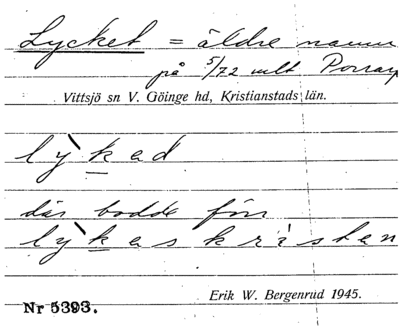 Lycket = äldre namn
på 5/72 mlt Porrarp
Vittsjö sn V. Göinge hd, Kristianstads län.
lỳkad
där bodde förr
lỳkaskristen
Erik W. Bergenrud 1945.
Nr 5393.